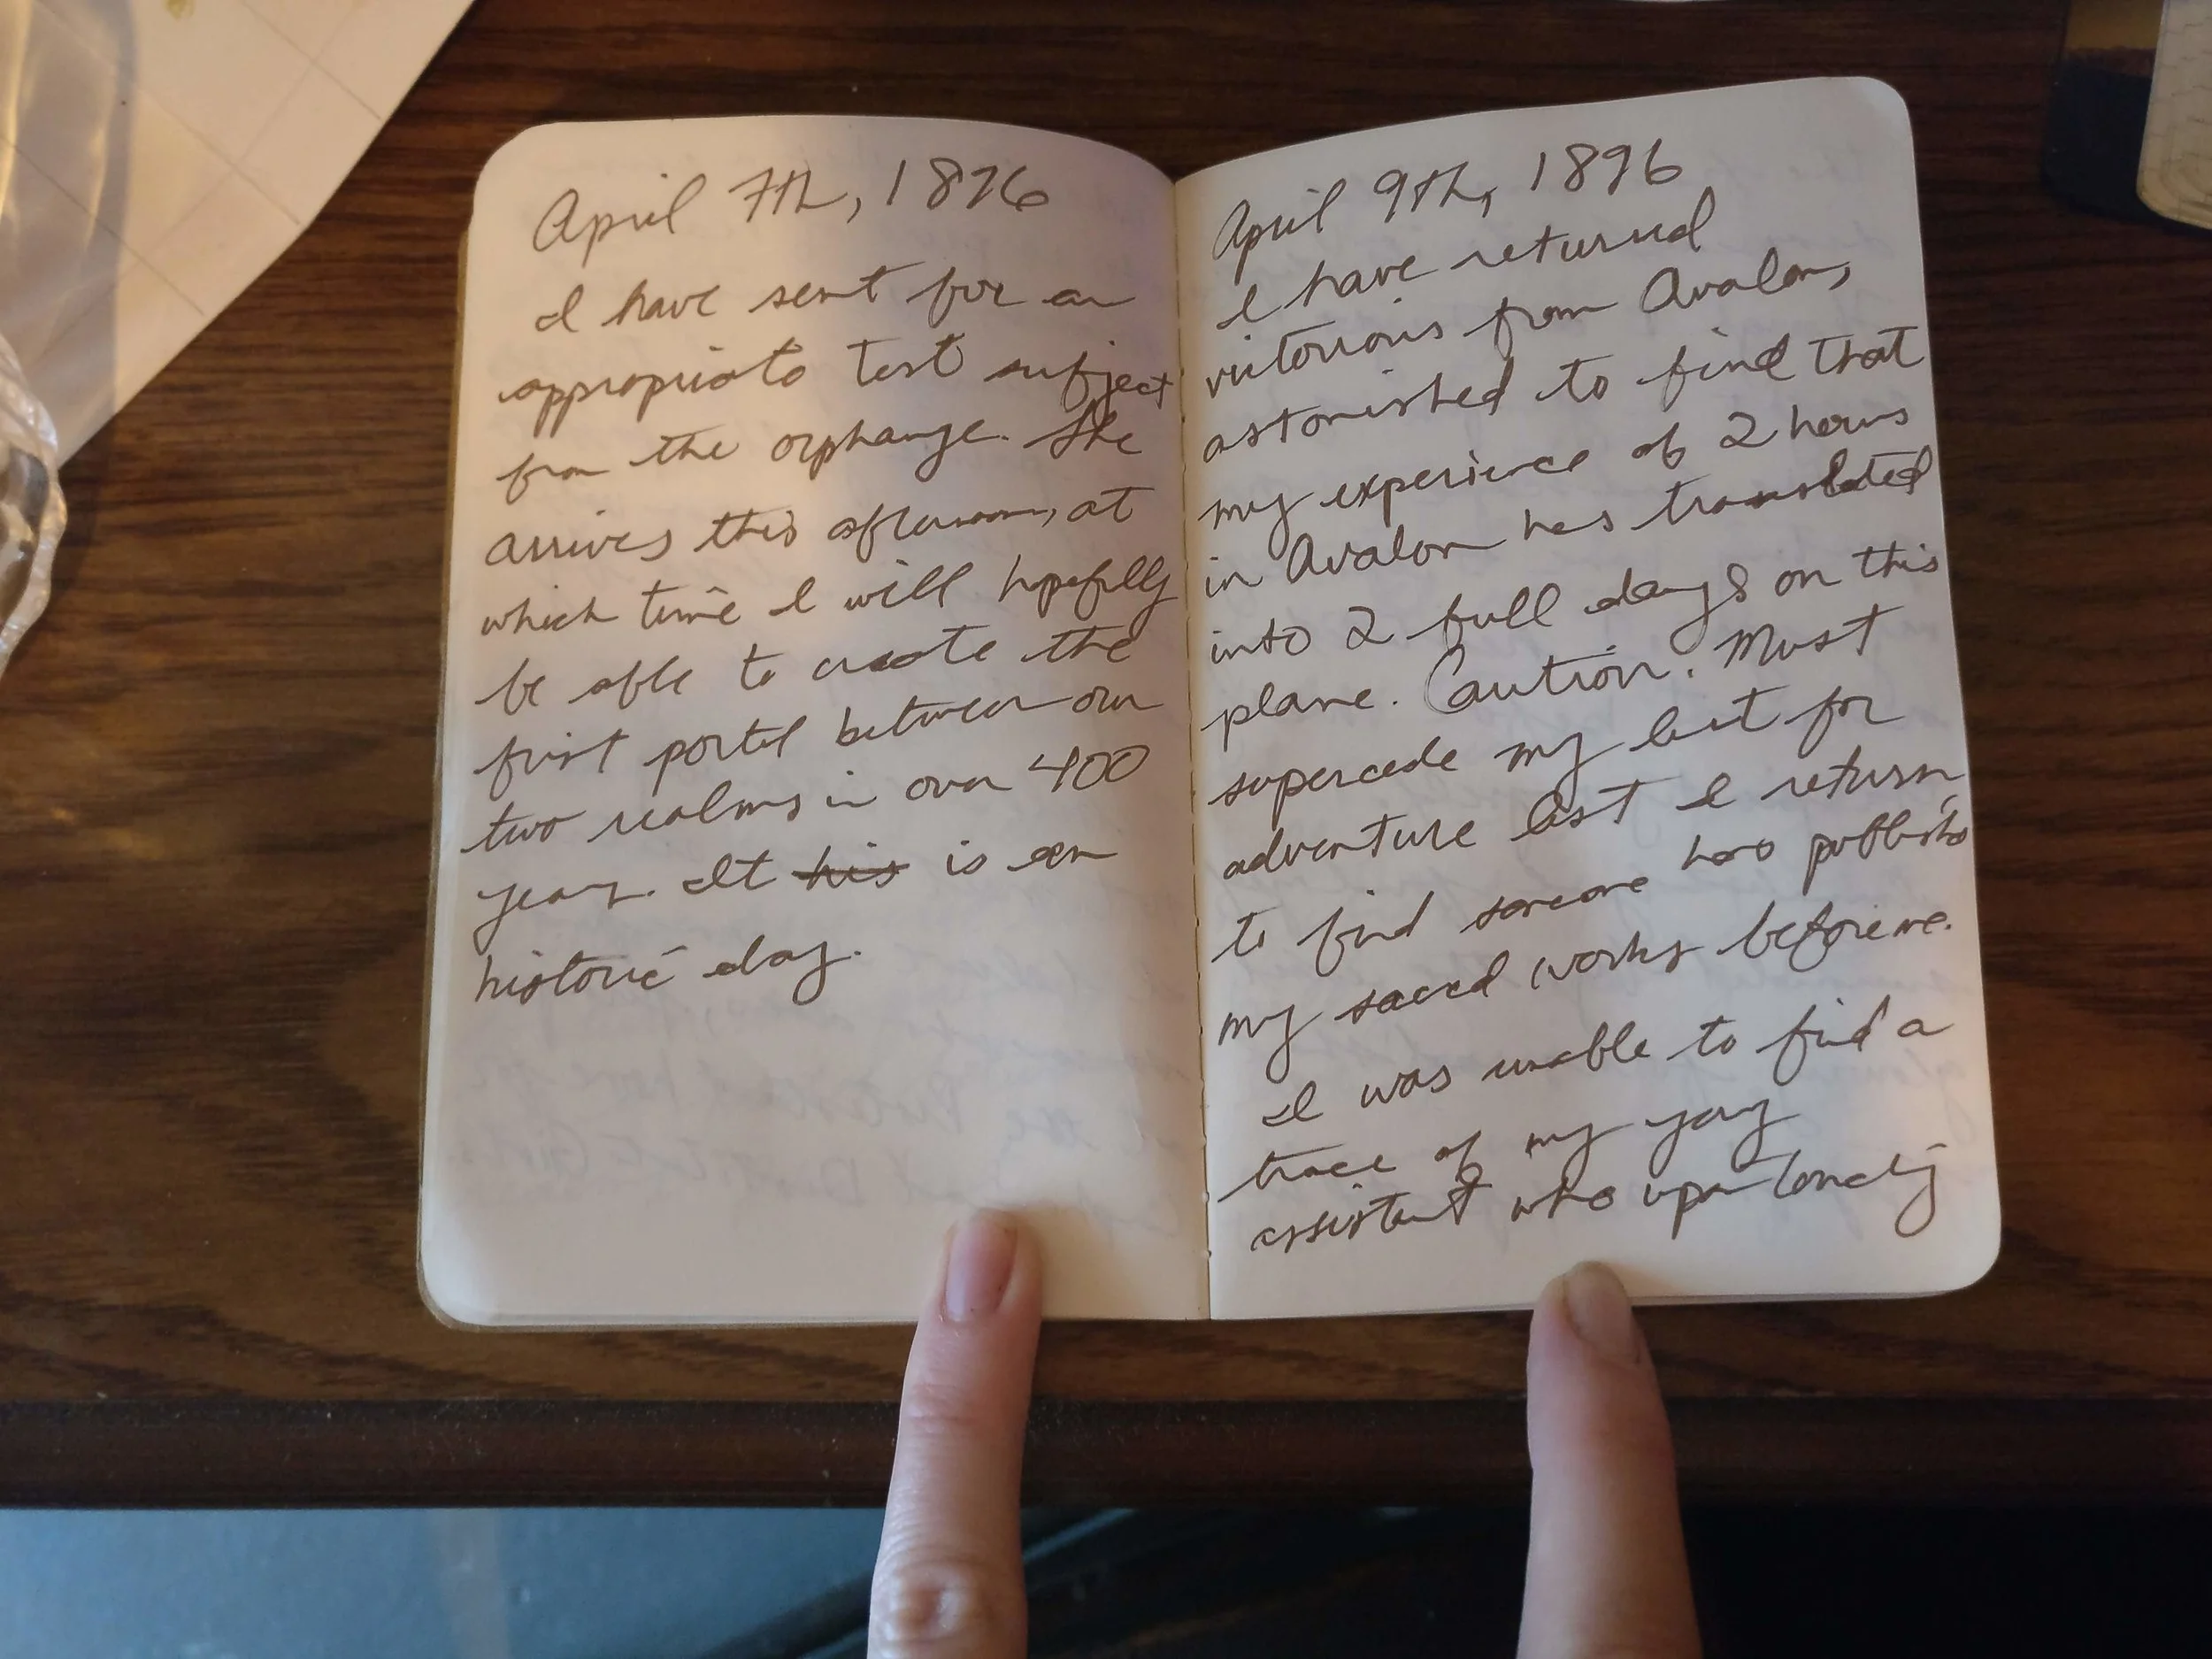 April 7th, 1896
I have sent for an
appropriate test subject
from the orphange. She
arrives this afternoon, at
which time I will hopefully
be able to create the
first portal between our
two realms in over 400
years. It his is an
historic day.
April 9th, 1896
I have returned
victorious from Avalon,
astonished to find that
my experience of 2 hours
in Avalon has translated
into 2 full days on this
plane. Caution. Must
supercede my lust for
adventure lest I return
to find someone has publish
my sacred works before me.
I was unable to find a
trace of my young
assistant who upon